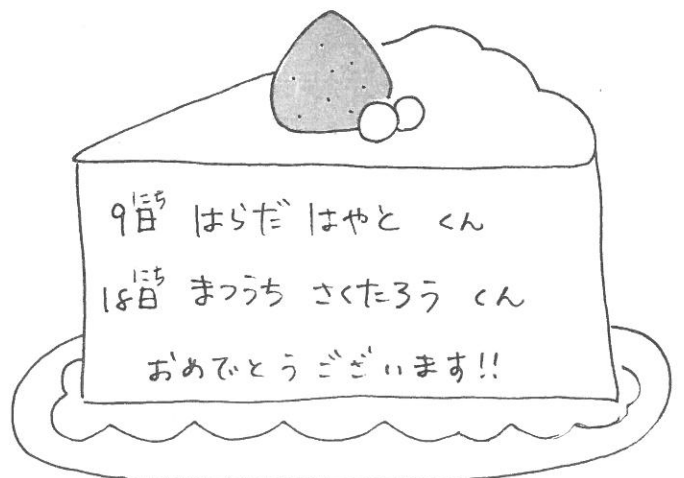 9日 はらだ はやと くん
18日 まつうち さくたろう くん
おめでとうございます!!